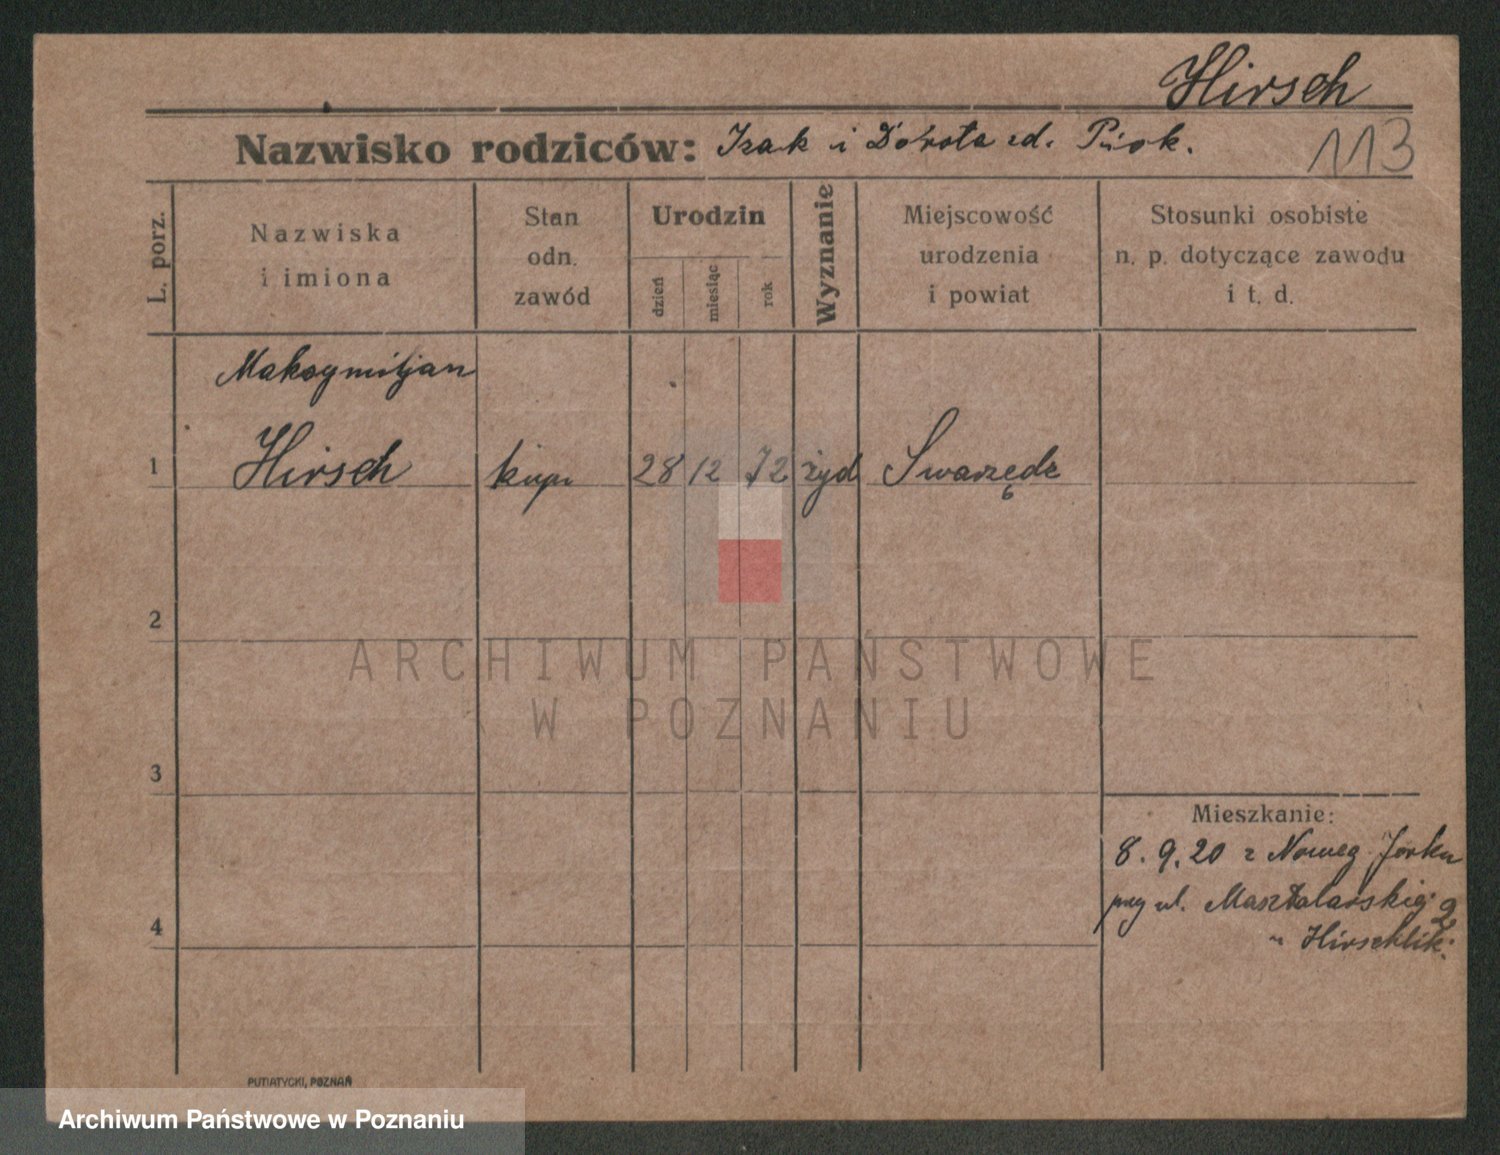 Hirsch
Nazwisko rodziców: Izak i Dorota zd.
113
L. porz.
Nazwiska
i imiona
Stan
odn.
zawód
Urodzin
dzień
miesiąc
rok
Wyznanie
Miejscowość
urodzenia
i powiat
Stosunki osobiste
n. p. dotyczące zawodu
i t. d.
Maksymiljan
1 Hirsch kup. 28 12 72 żyd Swarzędz
2
ARCHIWUM PAŃSTWOWE
W POZNANIU
3
Mieszkanie:
8. 9. 20 z Noweg Jorku
przy ul. Masztalarskiej 2
4
PUTIATYCKI, POZNAŃ
Archiwum Państwowe w Poznaniu